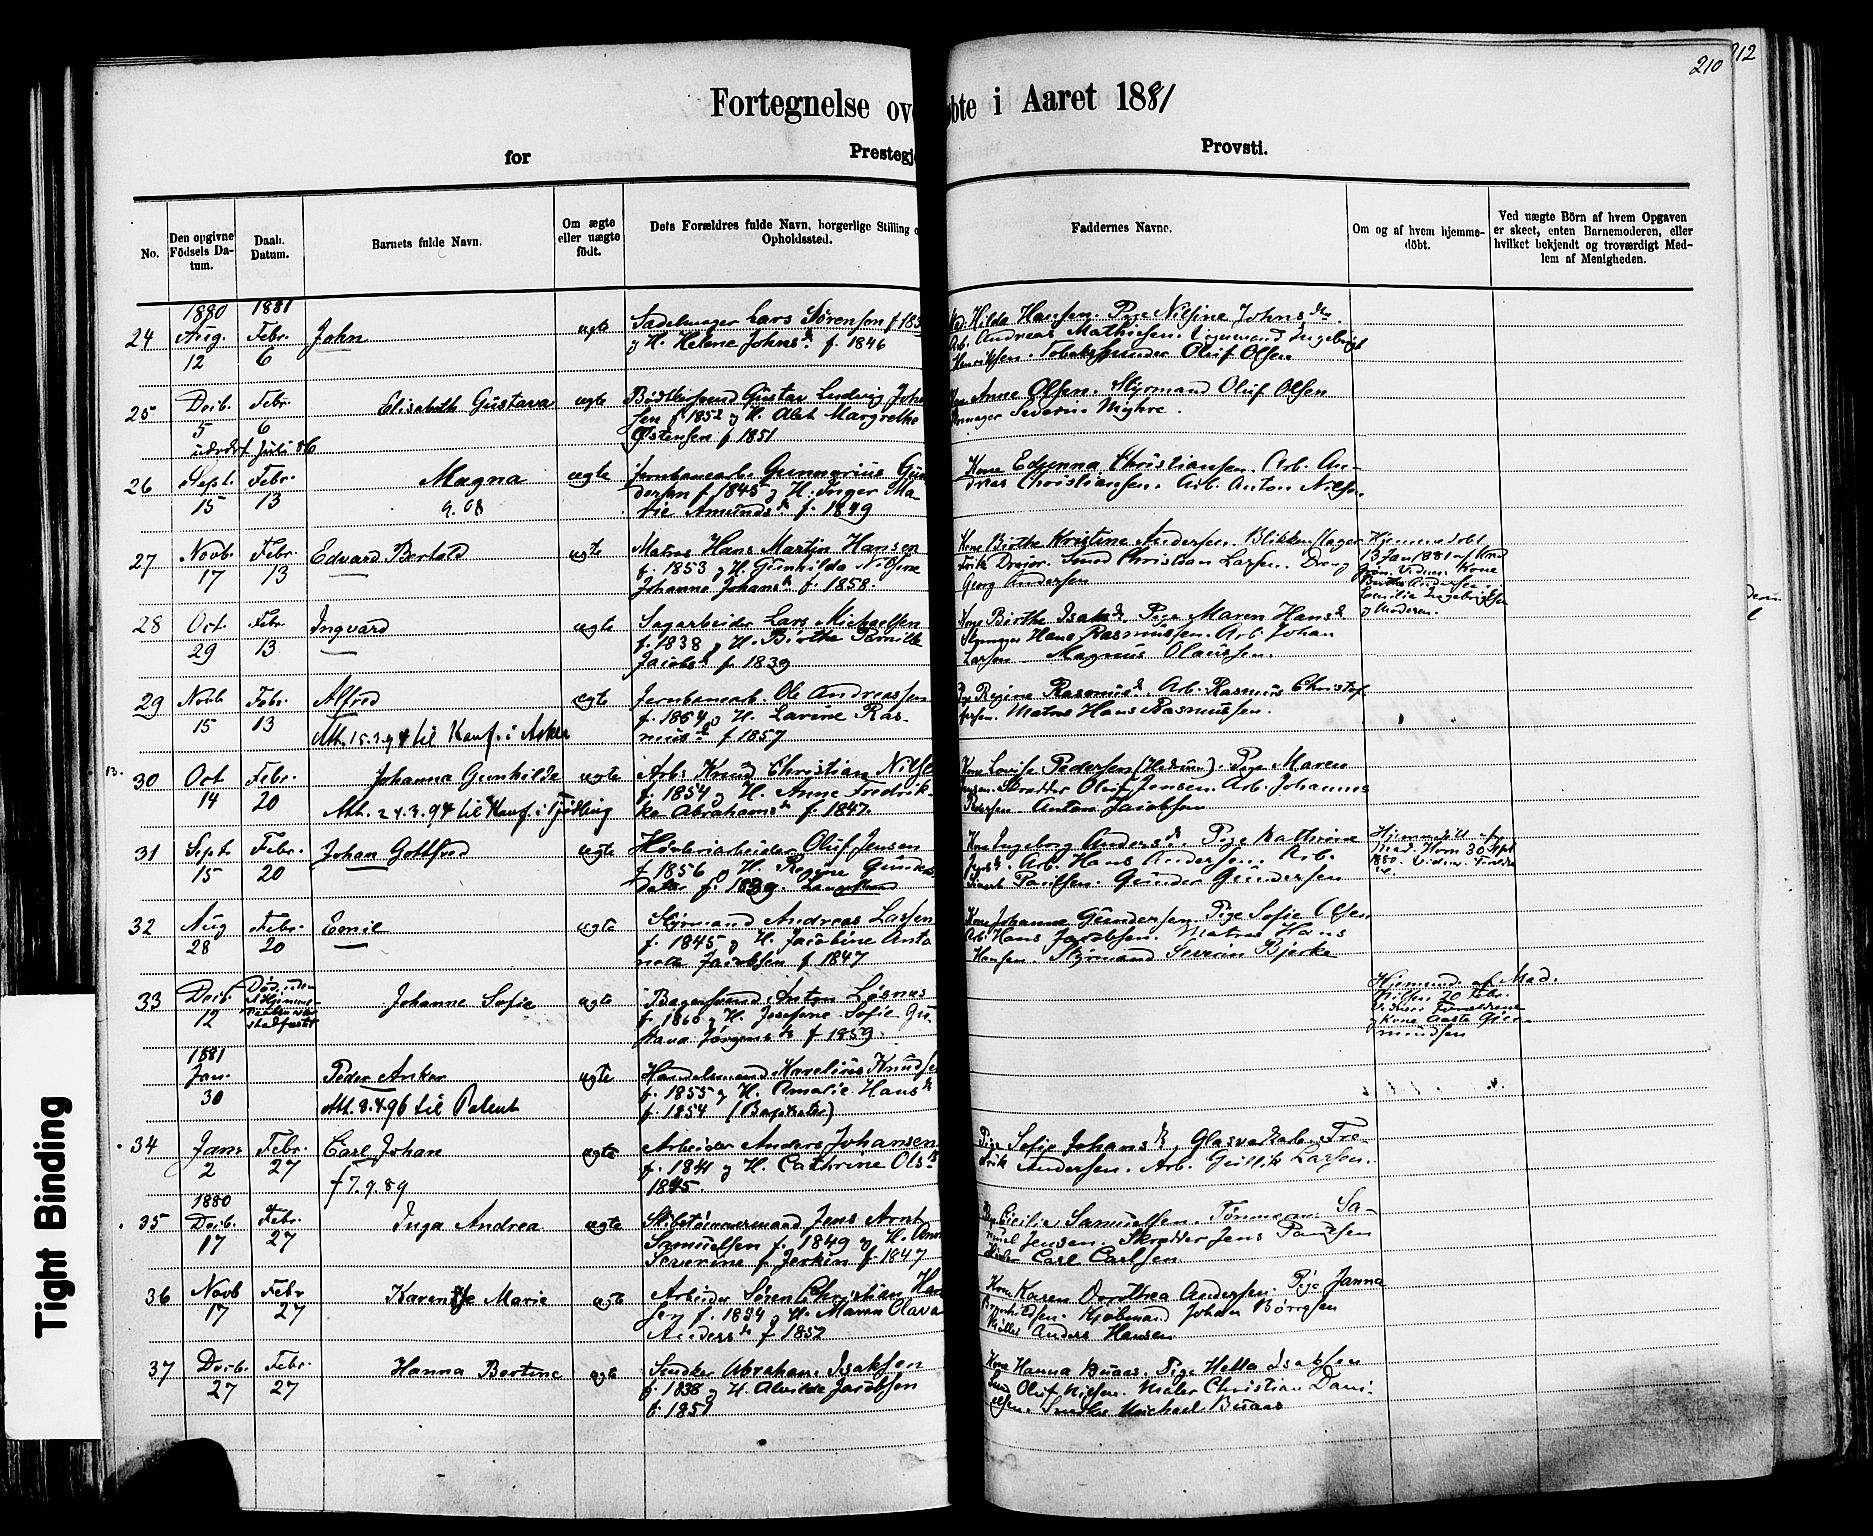 210
212
Fortegnelse ov
øbte i Aaret 1881
for
Prestegje
Provsti.
No.
Den opgivne Födsels Datum.
Daab. Datum.
Barnets fulde Navn.
Om ægte eller uægte födt.
Dets Forældres fulde Navn, borgerlige Stilling o
Opholdssted.
Faddernes Navne.
Om og af hvem hjemmedöbt.
Ved uægte Börn af hvem Opgaven er skeet, enten Barnemoderen, eller hvilket bekjendt og troværdigt Medlem af Menigheden.
1880 1881
24 Aug. 12 Febr. 6 John ægte Sadelmager Lars Sörensen f 185
og H. Helene Johnsd. f. 1846
Hilda Hansen. Pige Nilsine Johnsd.
Arb. Andreas Mathiesen. Ingebrigt
Henriksen. Tobakspinder Oluf Olsen
25 Decb. 5 Febr. 6 Elisabeth Gustava ægte Gustav Ludvig Joh
sen f 1852 og H. Alet Margrethe
Östensen f 1851
Anne Olsen. Styrmand Oluf Olsen
Severin Myhre.
Juli 86
26 Sept. 15 Febr. 13 Magna ægte Jernbanearb. Gunnerius Gun
dersen f. 1845 og H. Inger Ma-
rie Amundsd. f. 1849
9.08
Kone Christiansen. Arb. An-
dreas Christiansen. Arb. Anton Nilsen
27 Novb. 17 Febr. 13 Edvard Bertold ægte Matros Hans Martin Hansen
f. 1853 og H. Gunhilda Nilsine
Johanna Johansd. f. 1858.
Kone Birthe Kristine Andersen. Blikkenslager
Smed Christian Larsen. Dreng
Georg Andersen
Hjemmedöbt
13 Jan 1881 af Mad
Kone
Emilie Ingebrigtsen
og Moderen.
28 Oct. 29 Febr. 13 Ingvard ægte Sagarbeider Lars Michaelsen
f. 1838 og H. Birthe Pernille
Jacobsd. f. 1839
Kone Birthe Isaksd. Pige Maren Hansd.
Hans Rasmussen. Arb. Johan
Larsen. Magnus Olaussen.
29 Novb 15 Febr. 13 Alfred ægte Jernbanearb. Ole Andreassen
f. 1854 og H. Lavine Ras-
musd. f 1857
Att. 15.3.94 til Konf. i Asker
Pige Regine Rasmusd. Arb. Rasmus Christof
fersen. Matros Hans Rasmussen.
13.
30 Oct 14 Febr. 20 Johanna Gunhilde ægte Arb. Knud Christian Nilse
f. 1854 og H. Anne Fredrik-
ke Abrahamsd. f. 1847.
Att. 24.3.94 til Konf. i Tjølling
Kone Lovise Pedersen (Hedrum). Pige Maren
Jensen. Skrædder Oluf Jensen. Arb. Johannes
Pedersen. Anton Jacobsen
31 Sept. 15 Febr. 20 Johan Gottfred ægte Oluf Jensen
f 1856 og H. Regine Gunders
Datter f. 1839. Langestrand
Kone Ingeborg Andersd. Pige Kathrine
Arb. Hans Andersen. Arb.
Paulsen. Gunder Gundersen
Hjemmedöbt af
Mad. Horn 30 Sept
1880.
32 Aug 28 Febr. 20 Emil ægte Styrmand Andreas Larsen
f. 1845 og H. Jacobine Anto
nette Jacobsen f 1847
Kone Johanne Gundersen. Pige Sofie Olsen
Arb. Hans Jacobsen. Matros Hans
Hansen. Styrmand Severin Bjerke
33 Decb. 12 Johanne Sofie ægte Bagersvend Anton Lösnes
f. 1860 og H. Josefine Sofie Gu
stava Jörgensd. f 1859.
Hjemmed. af Mad.
Nilsen 20 Febr.
Vidner Forældrene
og Kone
1881
Jan. 30 Peder Anker ægte Handelsmand Karelius Knudse
f. 1855 og H. Amalie Hansd.
f. 1854 (Baptister)
Att. 8.4.96 til Patent
34 Jan. 2 Febr. 27 Carl Johan ægte Arbeider Anders Johansen
f. 1841 og H. Cathrine Olsd.
1845.
† 7.9.89
Pige Sofie Johansd. Fre-
drik Andersen. Arb. Gullik Larsen.
1880
35 Decb. 17 Febr. 27 Inga Andrea ægte Skibstömmermand Jens Arnt
Samuelsen f. 1849 og H. Ann
Severine f. 1847
Cicilie Samuelsen. Tömmerm. Sa-
muel Jensen. Skrædder Jens Paulsen
Carl Carlsen.
36 Novb 17 Febr 27 Karen Marie ægte Arbeider Sören Christian Han
sen f. 1834 og H. Maren Olava
Andersd. f 1852
Kone Karen Dorthea Andersen. Pige Janna
Johan Börresen
Anders Hansen
37 Decb. 27 Febr. 27 Hanna Bertine ægte Snedker Abraham Isaksen
f. 1838 og H. Alvilde Jacobsen
f. 1851
Kone Hanna Buaas. Pige Hella Isaksen
Oluf Nielsen. Maler Christian Dani-
elsen. Snedker Michael Buaas
Tight Binding